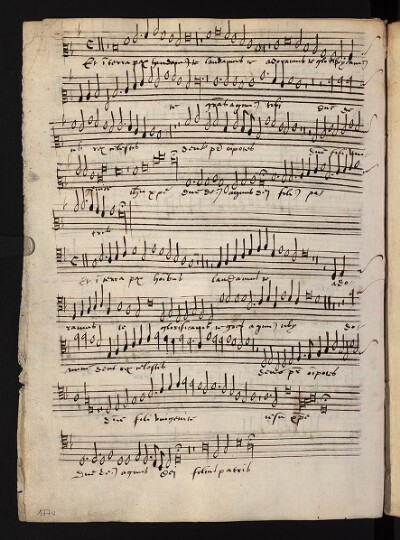 Et i terra pax laudamus te laudamus te adoramus te glorificamus
te gras agimus tibi dne de
us rex celestis deus pr oipotes dne fili uni
genite ihu xpe dne deus agnus dei filius pa
tris
Et i terra pax hoibus laudamus te ado
ramus te glorificamus te gras agimus tibi do
mine deus rex celestis deus pr oipotes
dne fili unigenite iesu xpe
dne deus agnus dei filius patris